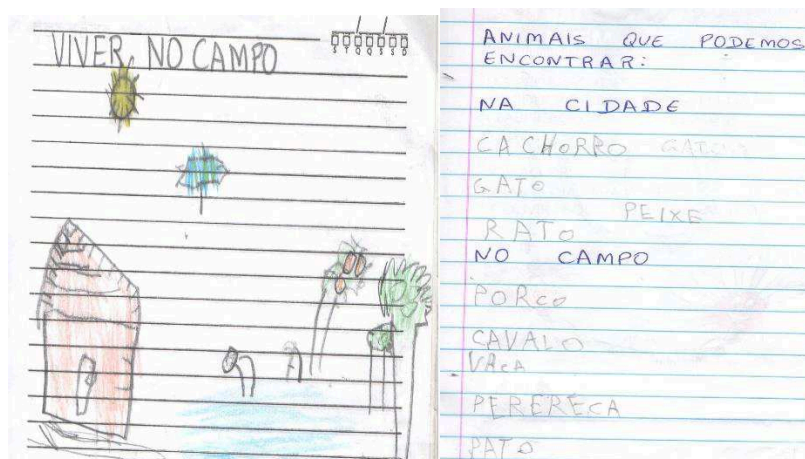 VIVER NO CAMPO
S T Q Q S S D
ANIMAIS QUE PODEMOS
ENCONTRAR:
NA CIDADE
CACHORRO GATO
GATO
PEIXE
RATO
NO CAMPO
PORCO
CAVALO
VACA
PERERECA
PATO